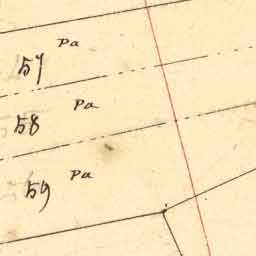 57 Pa
58 Pa
59 Pa